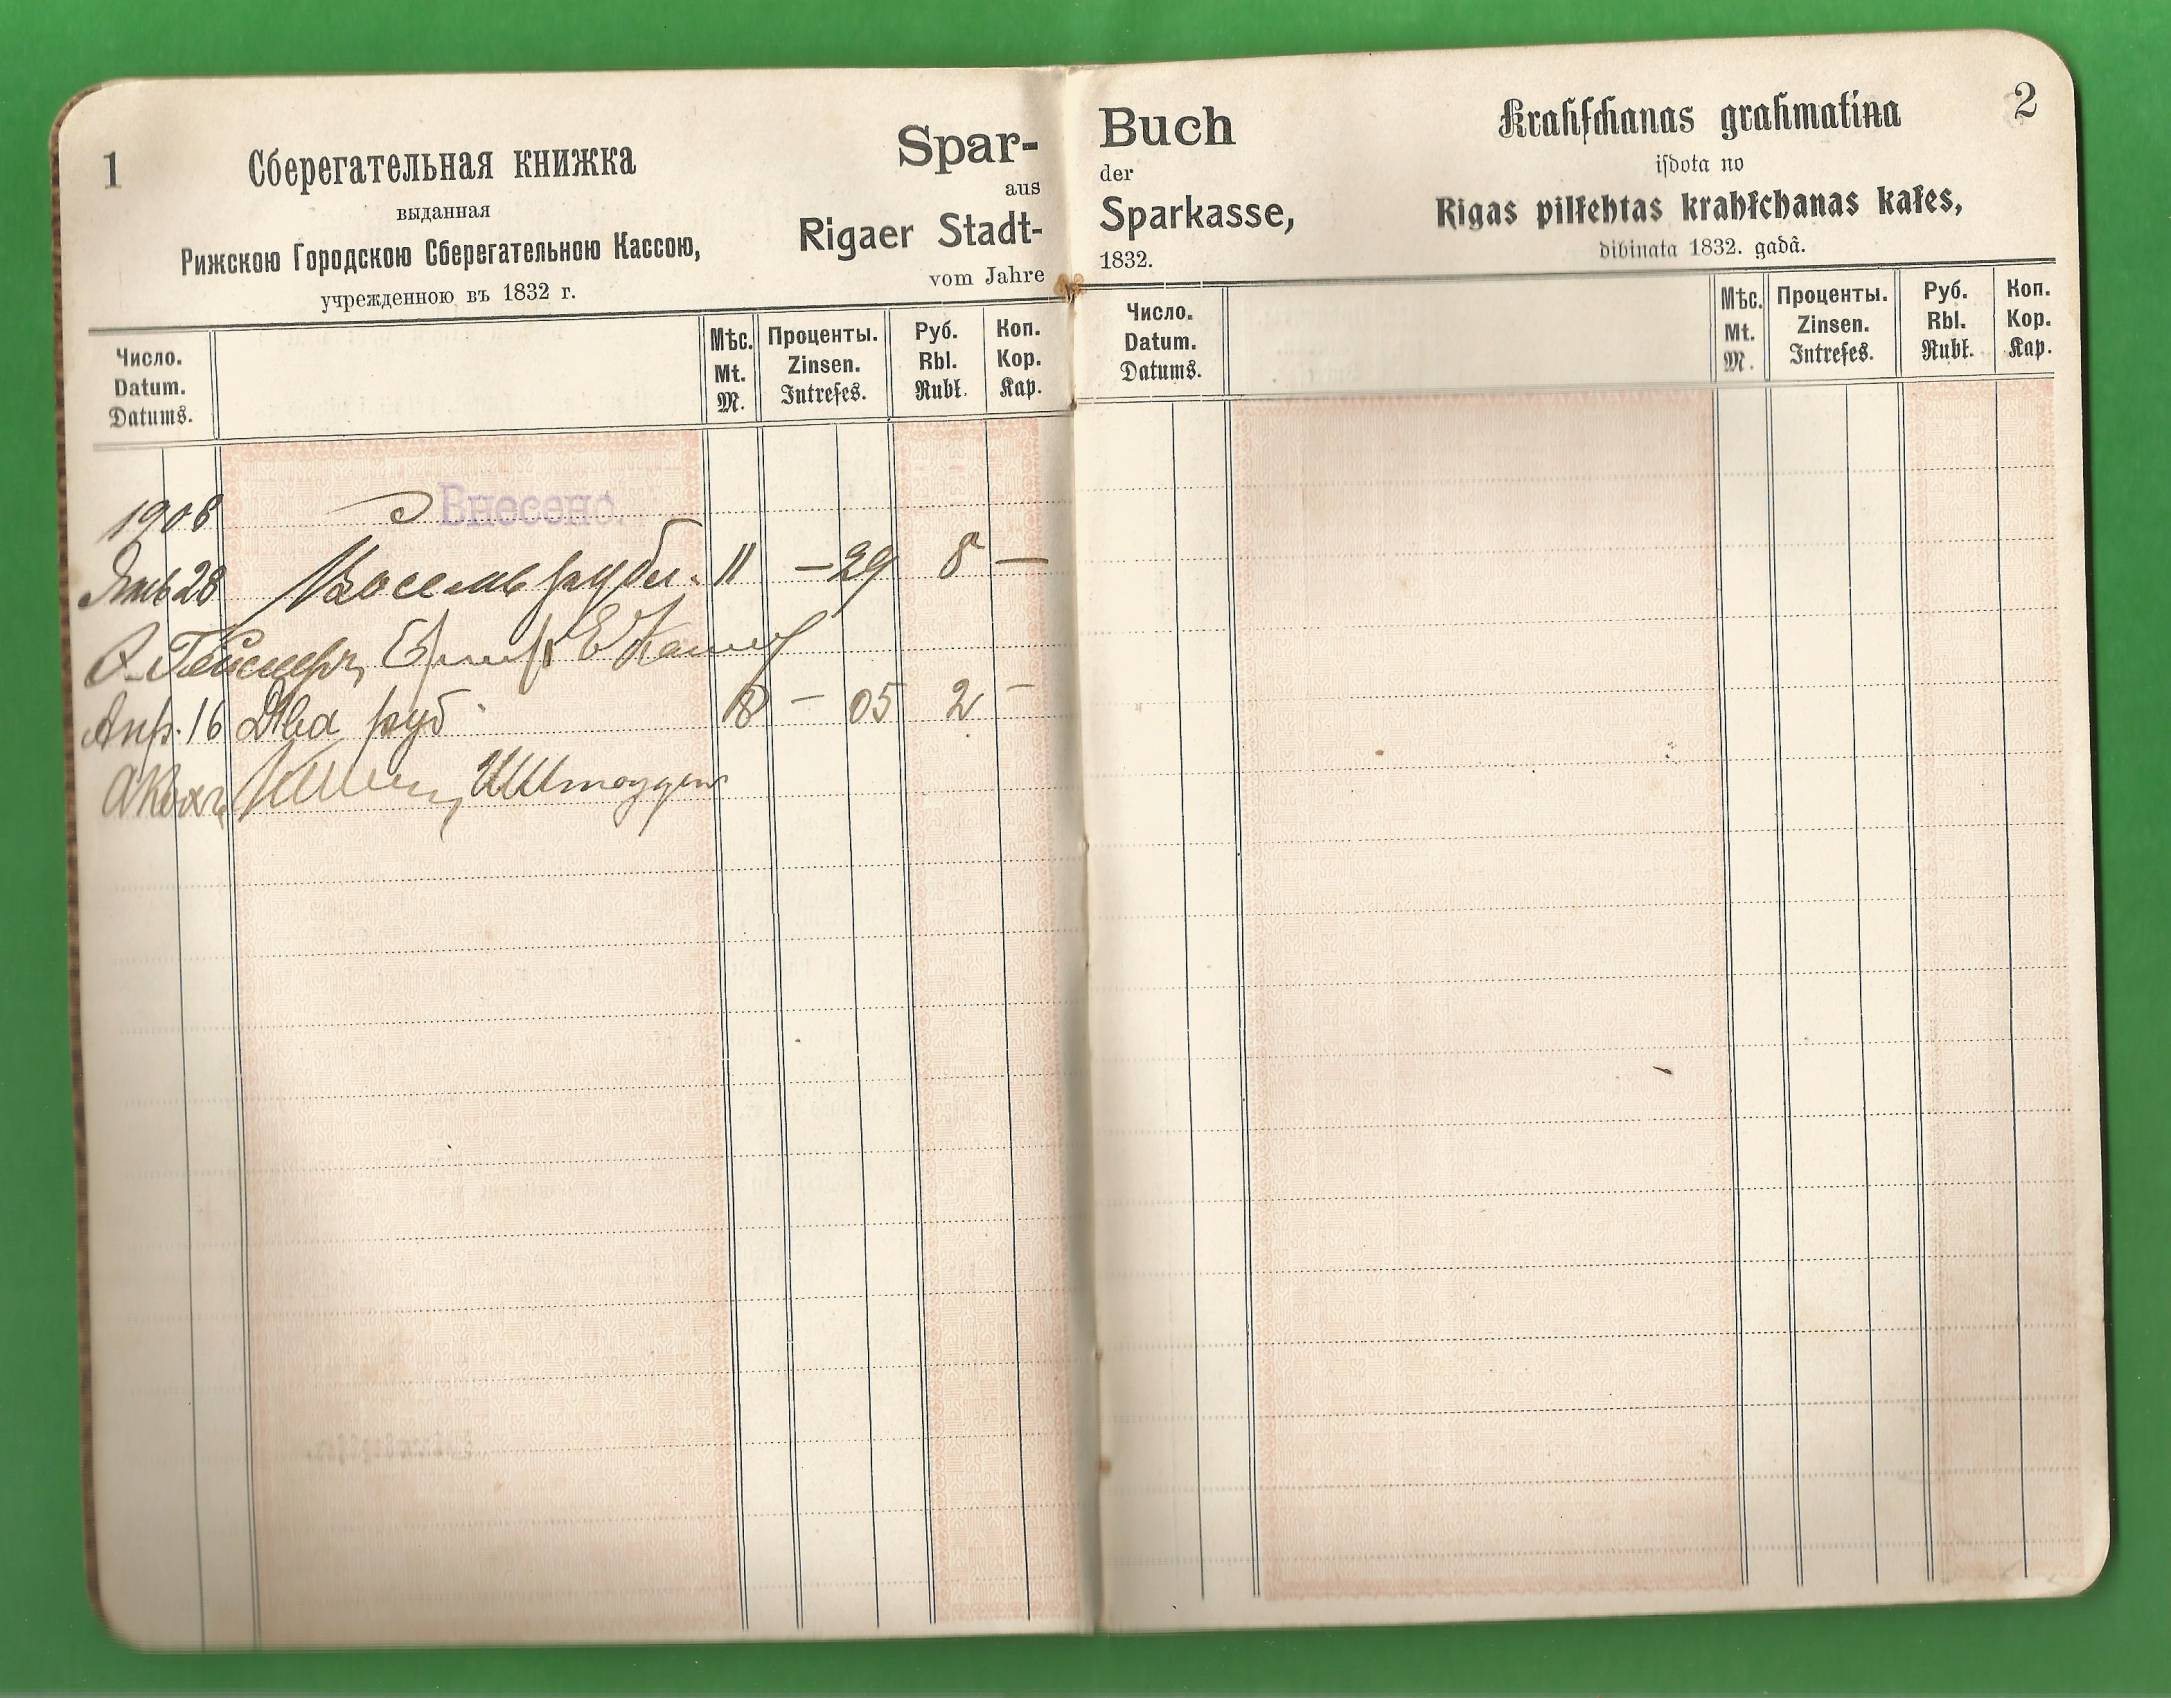 1
Сберегательная книжка
выданная
Рижскою Городскою Сберегательною Кассою,
учрежденною въ 1832 г.
Spar-
aus
Rigaer Stadt-
vom Jahre
Число.
Datum.
Datums.
Мѣс. Проценты. Руб. Коп.
Mt. Zinsen. Rbl. Kop.
M. Intreſes. Rubł. Kap.
Внесено.
1908
Янв 28 Восемь рубл. 11 — 29 8 —
Апр. 16 Два руб. 8 — 05 2 —
Buch
der
Sparkasse,
1832.
Krahſchanas grahmatiņa
iſdota no
Rigas pilſehtas krahſchanas kaſes,
dibinata 1832. gadâ.
2
Число.
Datum.
Datums.
Мѣс. Проценты. Руб. Коп.
Mt. Zinsen. Rbl. Kop.
M. Intreſes. Rubł. Kap.